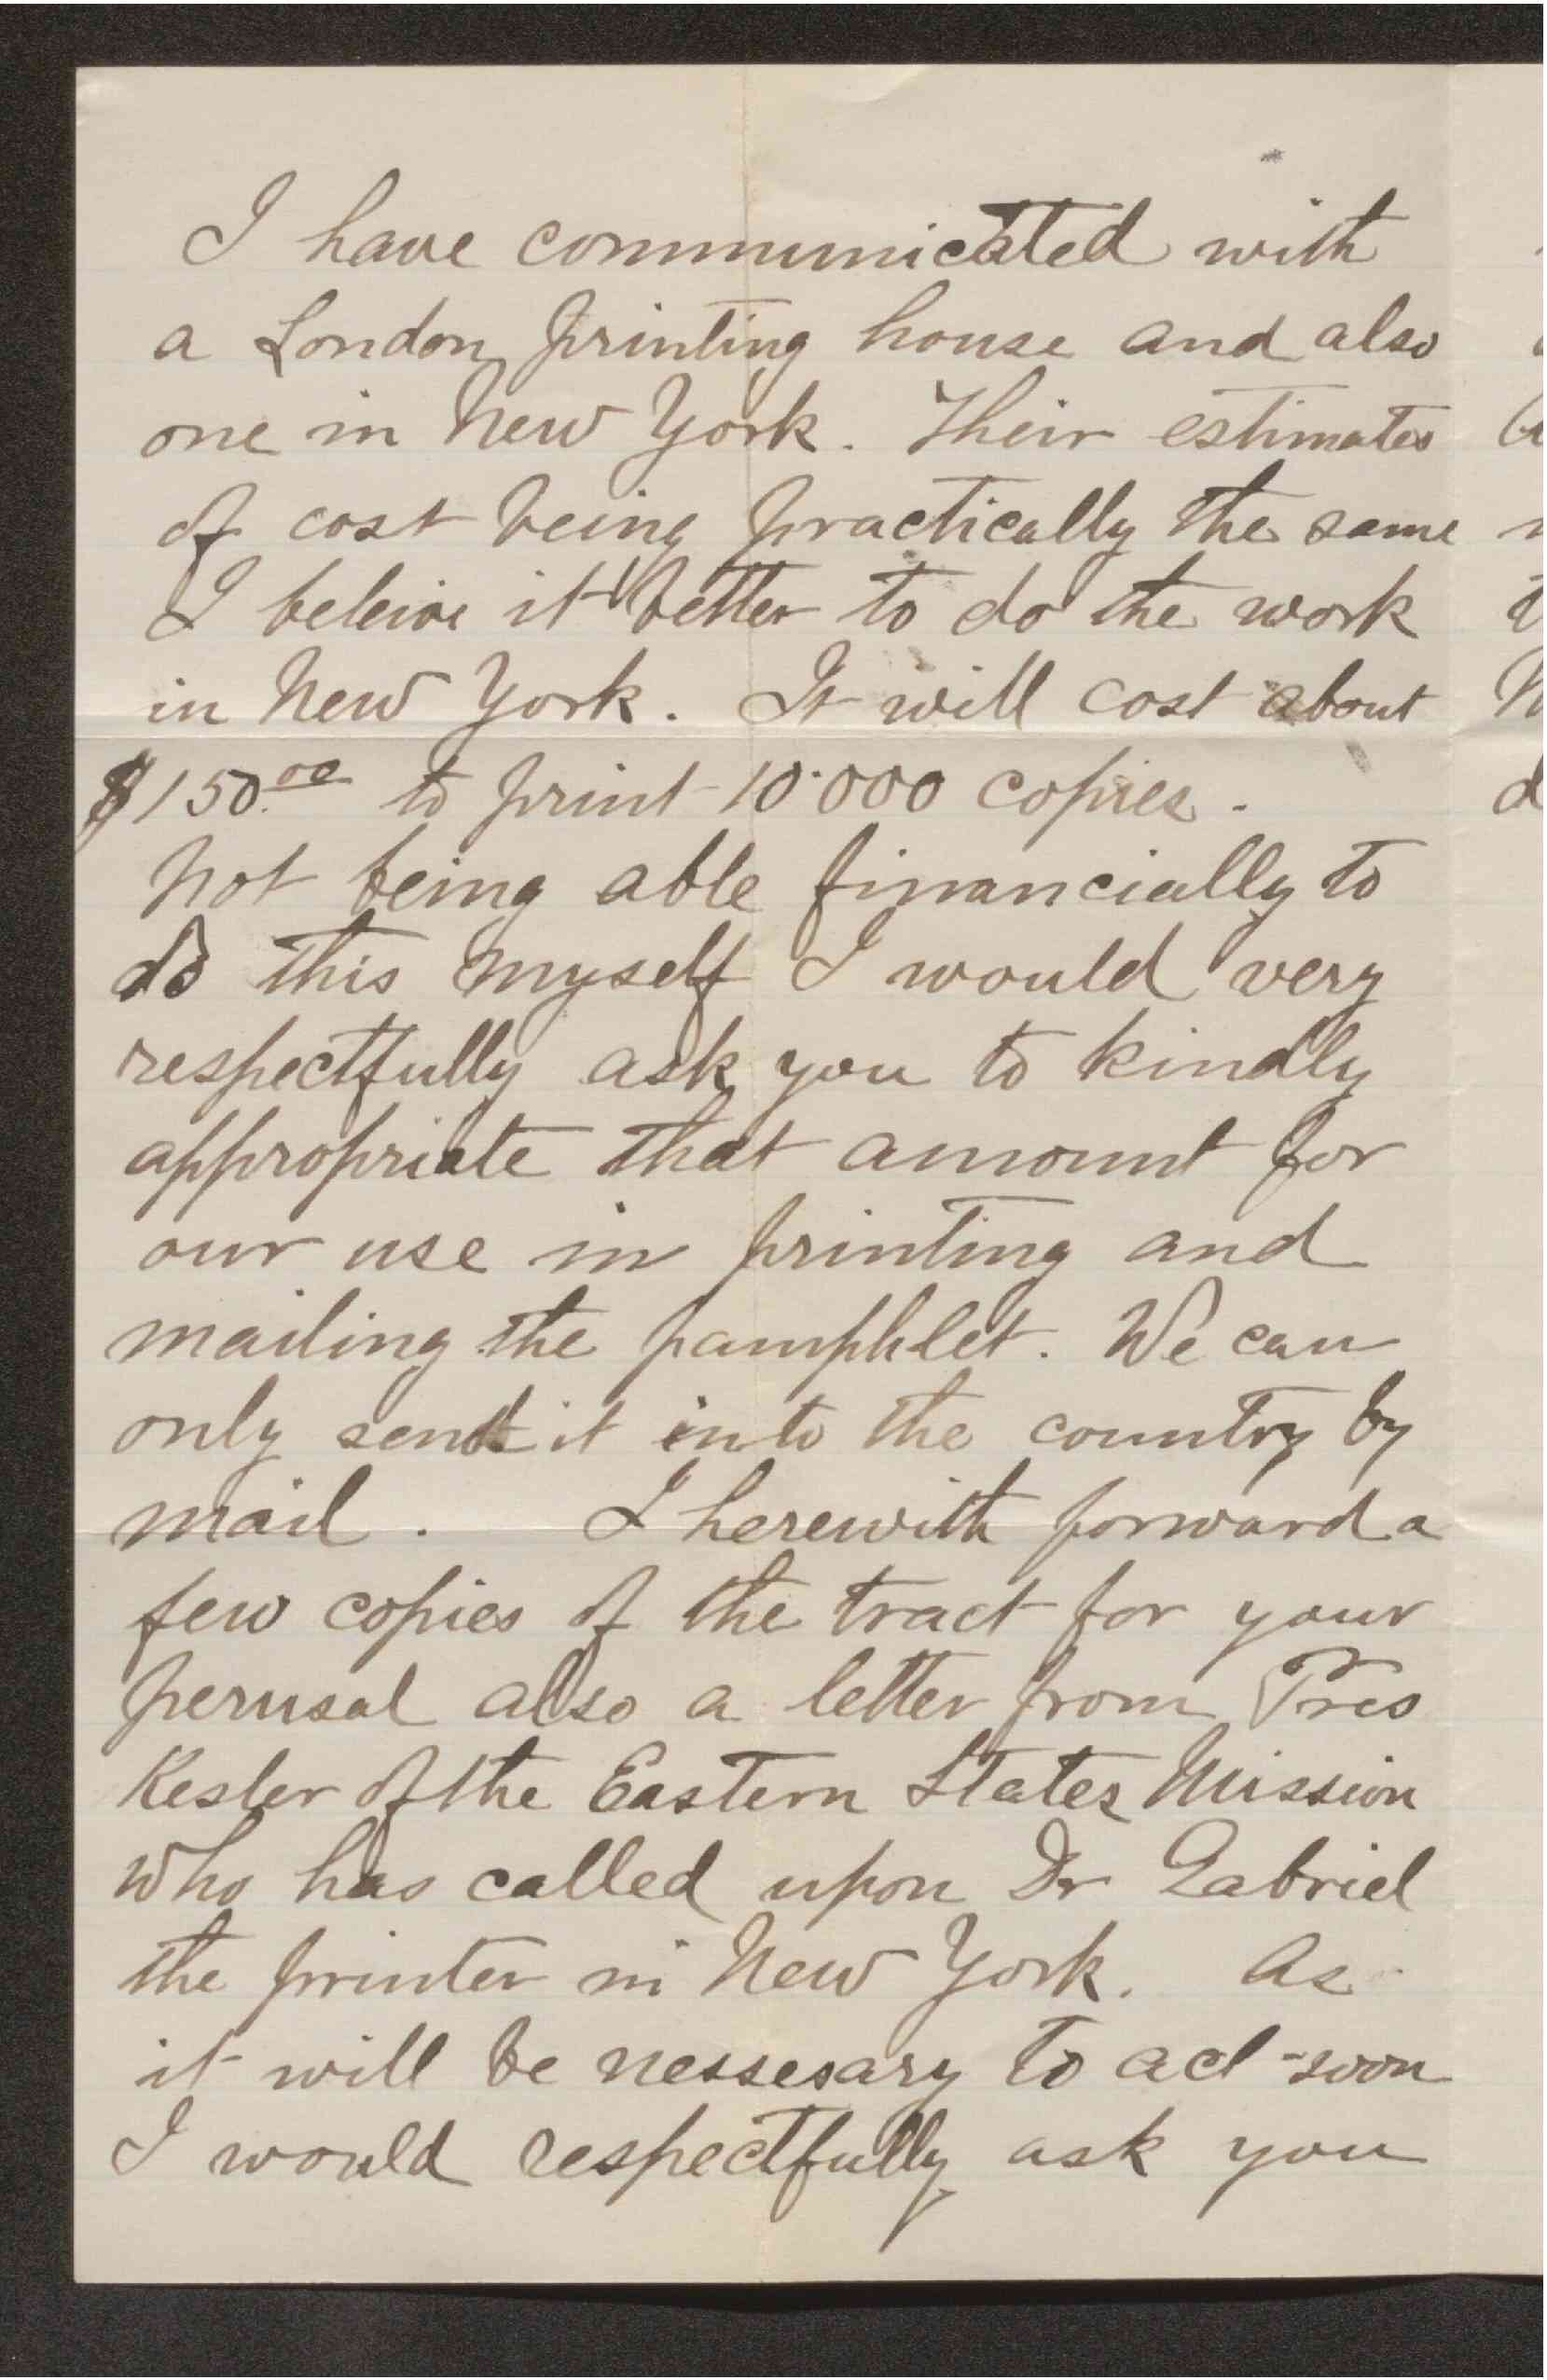 I have communicated with
a London printing house and also
one in New York. Their estimates
of cost being practically the same
I beleive it better to do the work
in New York. It will cost about
$150.00 to print 10.000 copies.
Not being able financially to
do this myself I would very
respectfully ask you to kindly
appropriate that amount for
our use in printing and
mailing the pamphlet. We can
only send it into the country by
mail. I herewith forward a
few copies of the tract for your
perusal also a letter from Pres
Kesler of the Eastern States Mission
who has called upon Dr Gabriel
the printer in New York. As
it will be nessesary to act soon
I would respectfully ask you